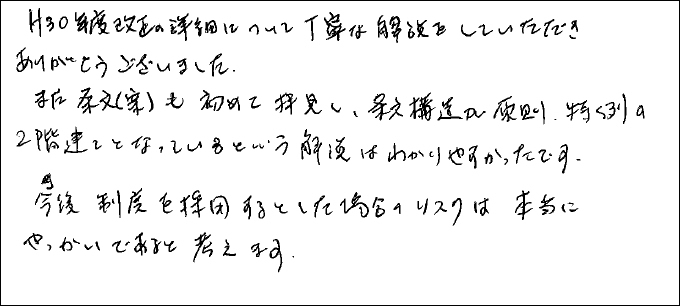 H30年度改正の詳細について丁寧な解説をしていただき
ありがとうございました.
また条文(案)も初めて拝見し、条文構造が原則.特例の
2階建てとなっているという解説はわかりやすかったです.
今後 制度を採用するとした場合のリスクは 本当に
やっかいであると考えます.